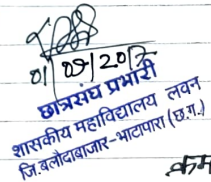 01/09/2017
छात्रसंघ प्रभारी
शासकीय महाविद्यालय लवन
जि.बलौदाबाजार-भाटापारा (छ.ग.)